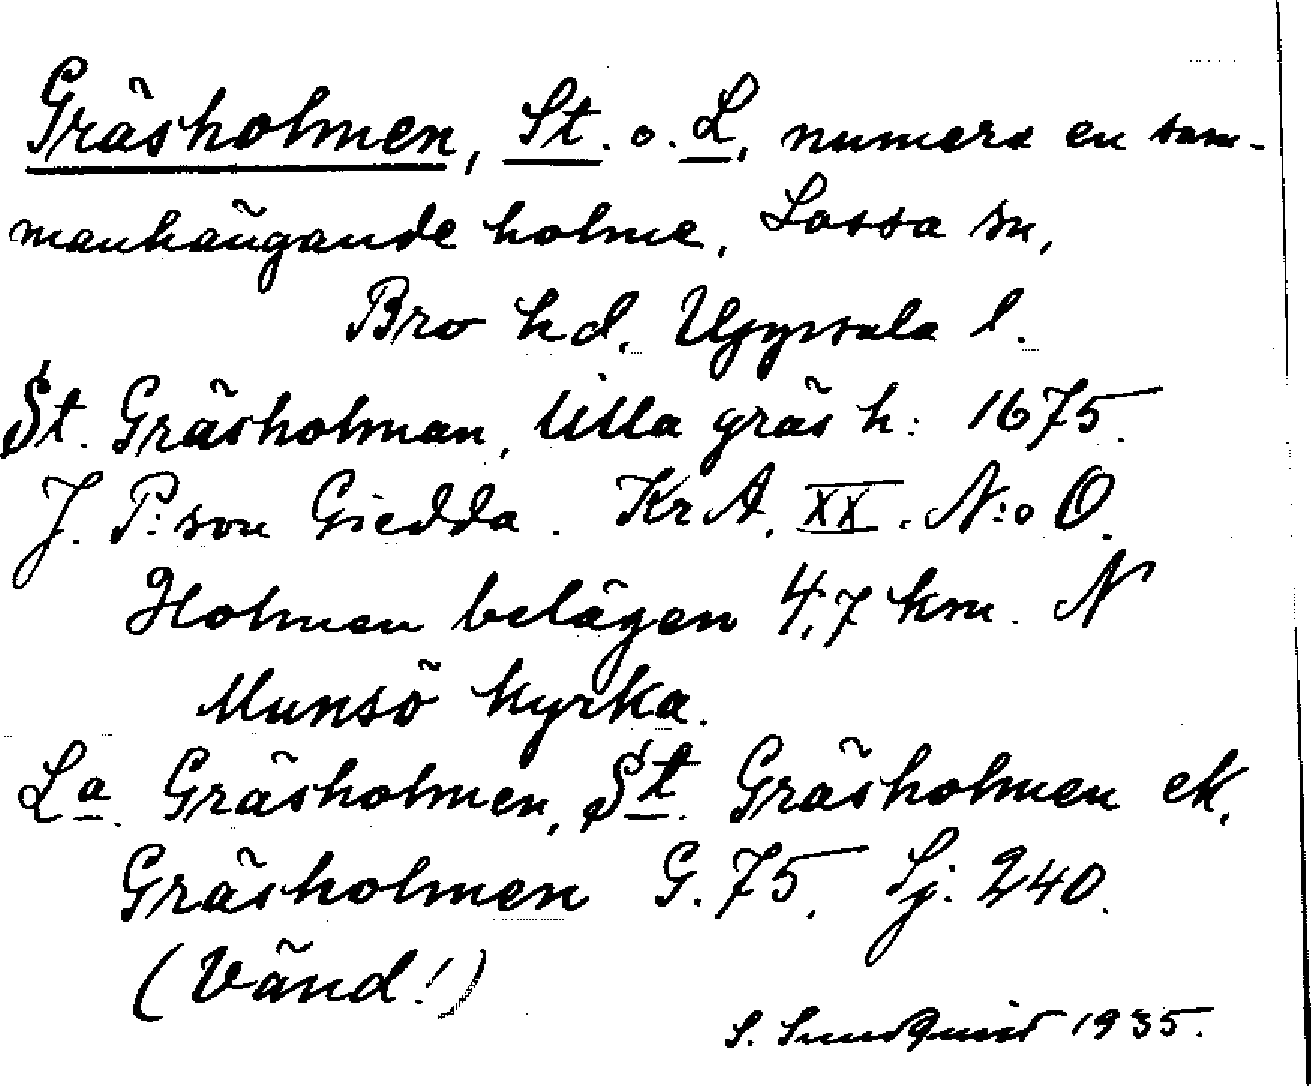 Gräsholmen, St. o. L. numera en sam-
manhängande holme, Lossa sn,
Bro hd, Uppsala l.
St. Gräsholman, lilla gräs h: 1675.
J. P:son Giedda. KrA, XX. N:o O.
Holmen belägen 4,7 km. N
Munsö kyrka.
La. Gräsholmen, St. Gräsholmen ek.
Gräsholmen G. 75. Sj: 240.
(Vänd!)
S. Sundquist 1935.